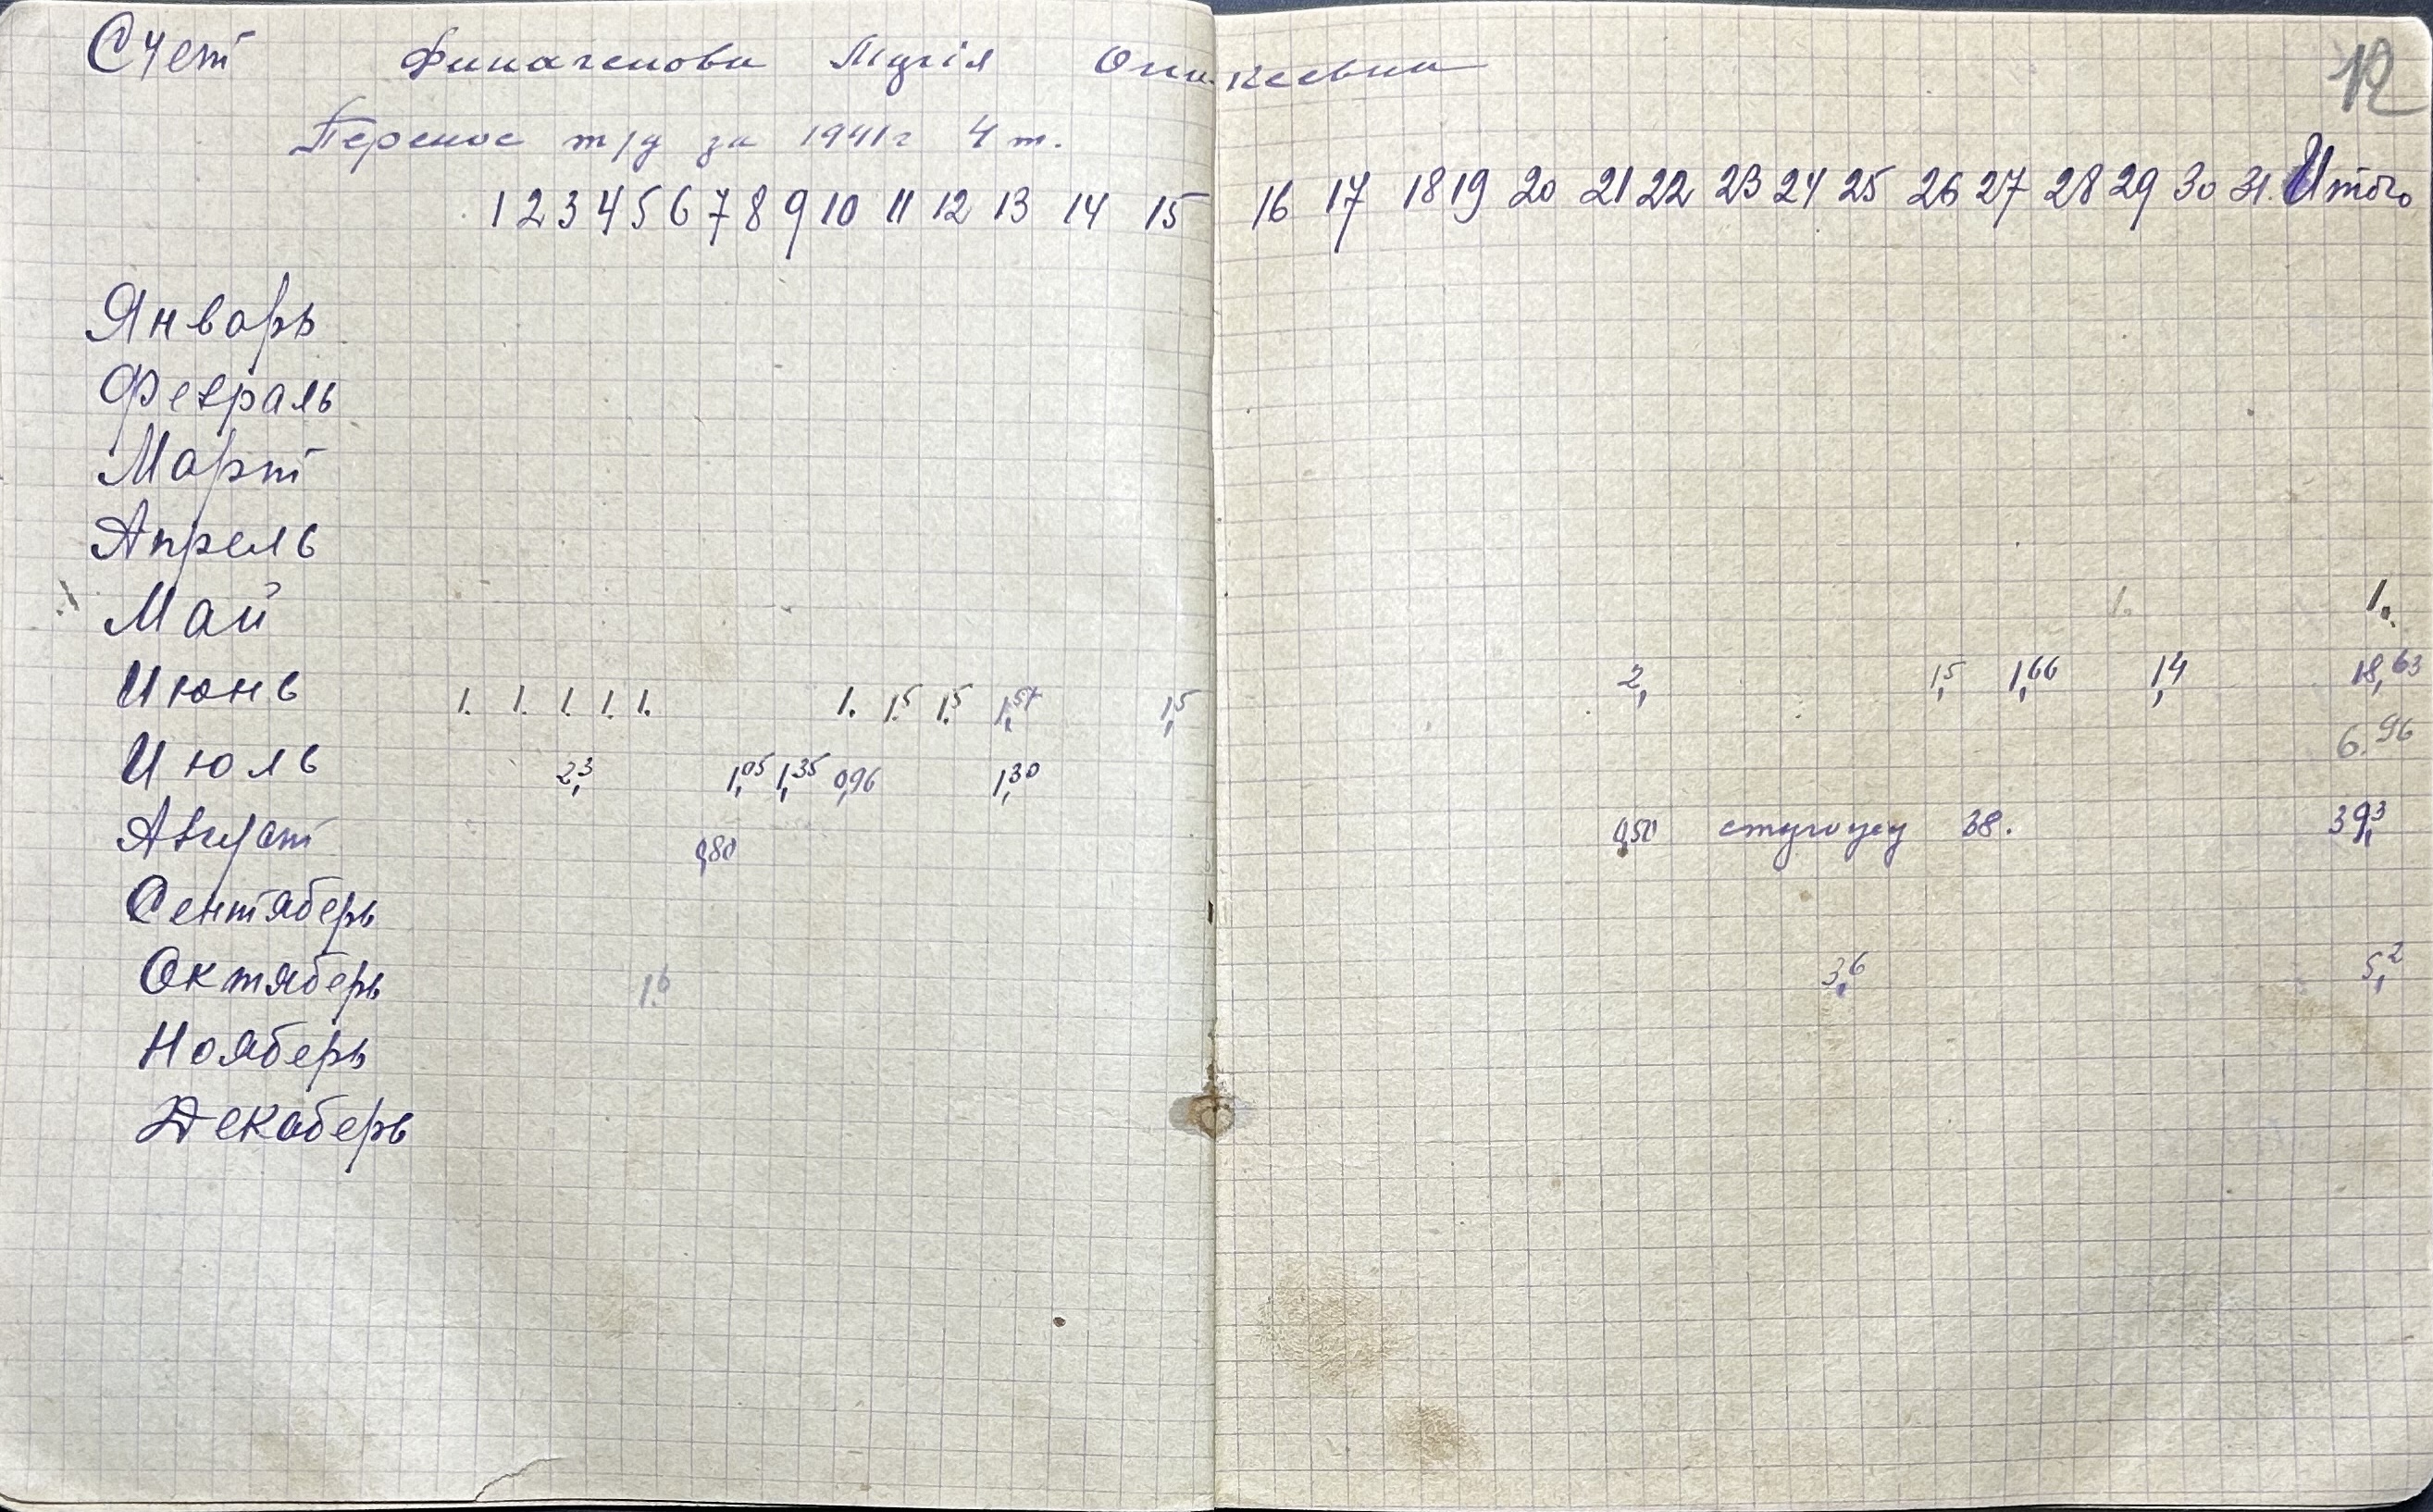 Счет
12
Перенос т/д за 1941г 4 т.
1 2 3 4 5 6 7 8 9 10 11 12 13 14 15 16 17 18 19 20 21 22 23 24 25 26 27 28 29 30 31. Итого
Январь
Февраль
Март
Апрель
Май 1. 1.
Июнь 1. 1. 1. 1. 1. 1. 1.5 1.5 1,57 1,5 2, 1,5 1,66 1,4 18,63
Июль 2,3 1,05 1,35 0,96 1,30 6.96
Август 0,80 0,50 38. 39,3
Сентяберь
Октяберь 1.6 3,6 5,2
Нояберь
Декаберь